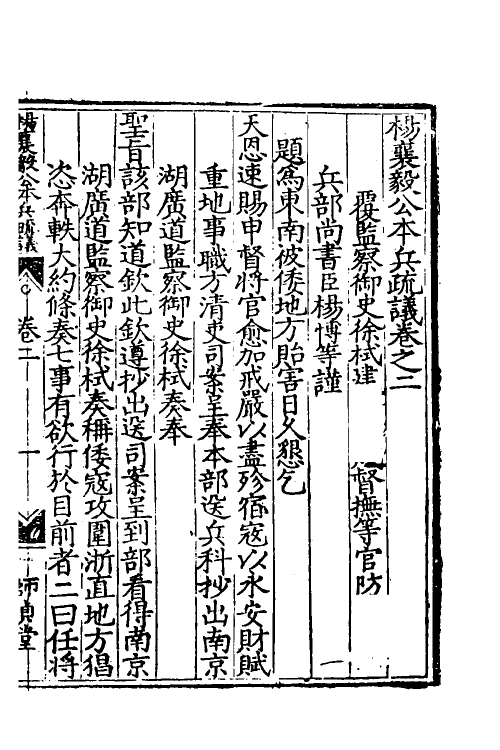 楊襄毅公本兵疏議卷之二
覆監察御史徐栻建 督撫等官防
兵部尚書臣楊博等謹
題爲東南被倭地方貽害日久懇乞
天恩速賜申督將官愈加戒嚴以盡殄宿寇以永安財賦
重地事職方清吏司案呈奉本部送兵科抄出南京
湖廣道監察御史徐栻奏奉
聖旨該部知道欽此欽遵抄出送司案呈到部看得南京
湖廣道監察御史徐栻奏稱倭寇攻圍浙直地方猖
恣奔軼大約條奏七事有欲行於目前者二曰任將
楊襄毅公本兵疏議
卷二
一
師貞堂